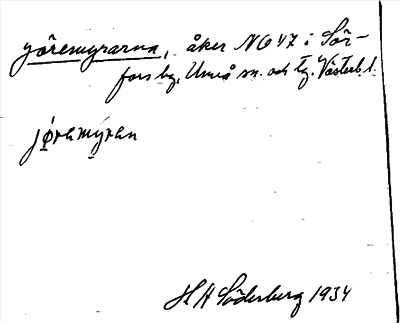 Göremyrarna, åker NO 47 i Sör-
fors by, Umeå sn. och tg. Västerb. l.
jöremyran
H H Söderberg 1934